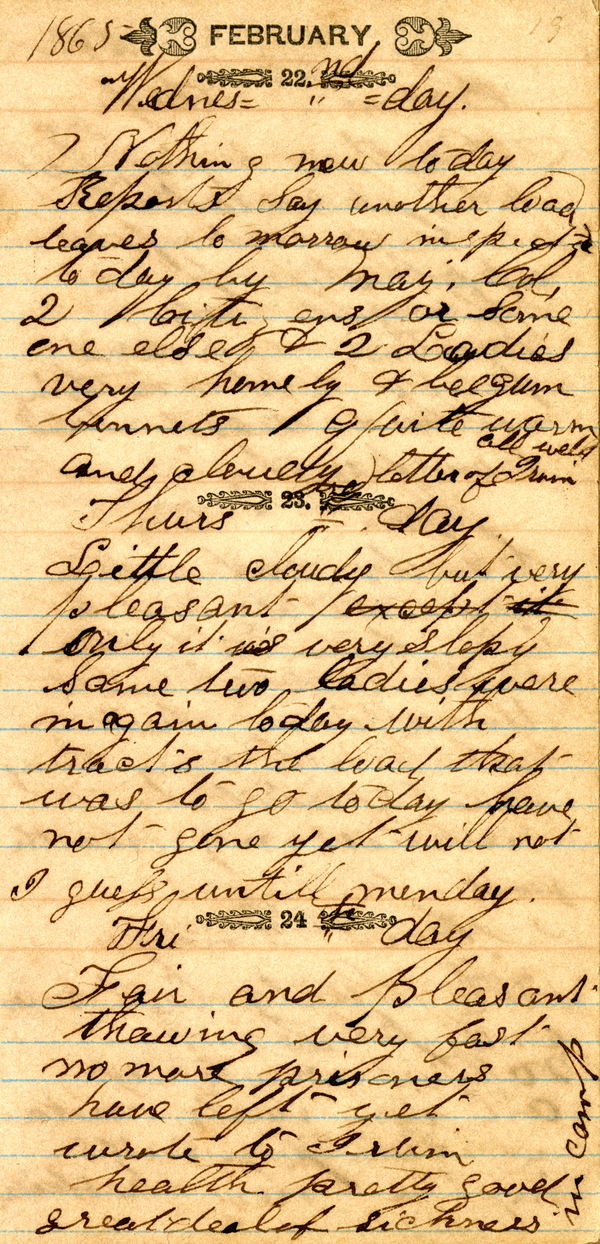 1865 FEBRUARY 19
22. nd
Wednes= " =day.
Nothing new today
Reports Say another load
leaves to morrow inspect=
to day by Maj, Col,
2 or Some
one else & 2 Ladies
very homely &
bonnets quite warm
all well
and cloudy letter of Irwin
23. rd
Thurs = day
Little cloudy but very
pleasant except it
only it is very slopy
Same two ladies were
in again today with
tracts the load that
was to go today have
not gone yet will not
I guess untill menday.
24 th
Fri " day
Fair and pleasant
thawing very fast
no more prisoners
have left yet
wrote to Irwin
health pretty good
great deal of sickness
in camp